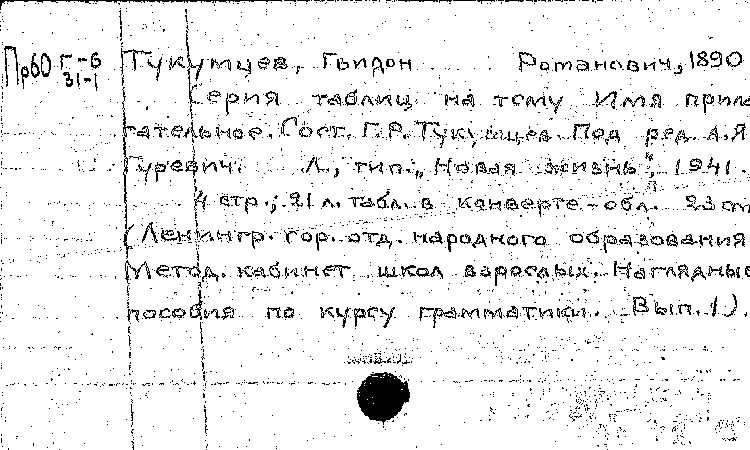 Пр60 Г-6 Тукумцев, Гвидон Романович, 1890
31-1
Серия таблиц на тему Имя прила
гательное. Сост. Г.Р. Тукумцев. Под ред. А.Я.
Гуревич. Л., тип. „Новая жизнь", 1941.
4 стр.; 21 л. табл. в конверте-обл. 23 cm
(Ленингр. гор. отд. народного образования
Метод. кабинет школ взрослых. Наглядные
пособия по курсу грамматики. Вып. 1).